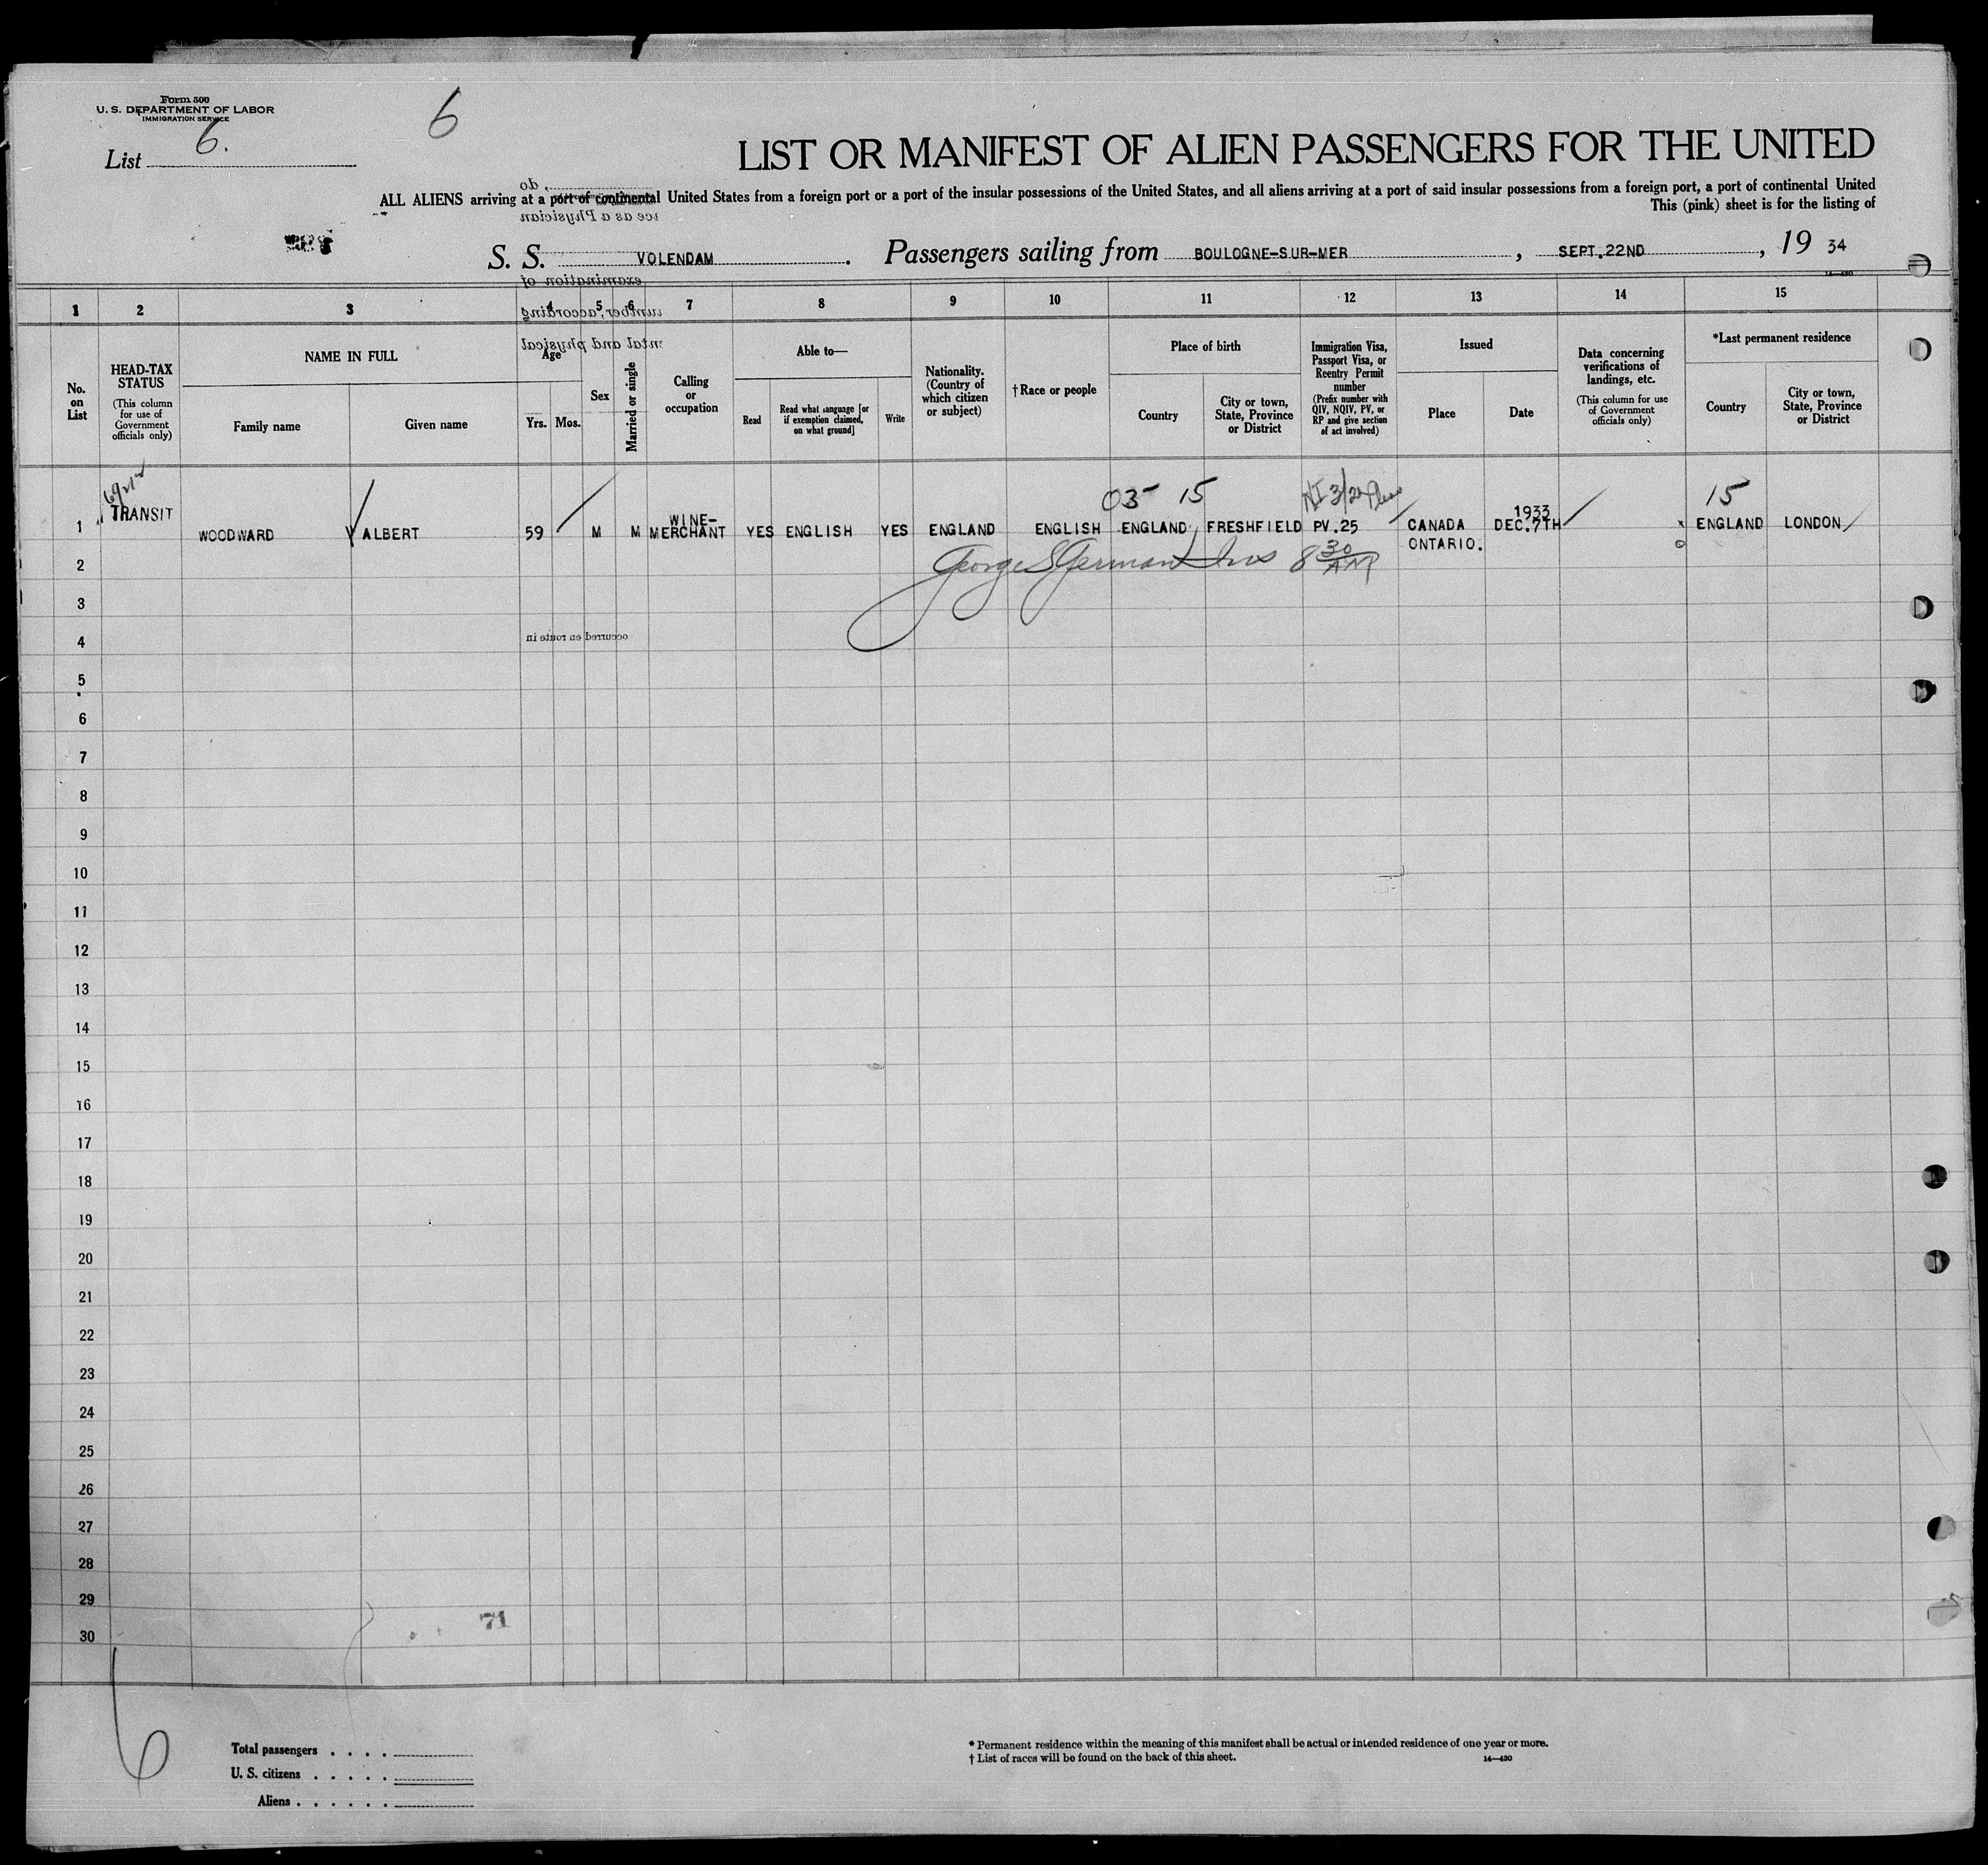 Form 500
U. S. DEPARTMENT OF LABOR
IMMIGRATION SERVICE
6
List 6.
LIST OR MANIFEST OF ALIEN PASSENGERS FOR THE UNITED
ALL ALIENS arriving at a port of continental United States from a foreign port or a port of the insular possessions of the United States, and all aliens arriving at a port of said insular possessions from a foreign port, a port of continental United
This (pink) sheet is for the listing of
S. S. VOLENDAM . Passengers sailing from BOULOGNE-SUR-MER , SEPT.22ND , 19 34
14—430
1 2 3 4 5 6 7 8 9 10 11 12 13 14 15
No. on List
HEAD-TAX STATUS
(This column for use of Government officials only)
NAME IN FULL
Family name
Given name
Age
Yrs. Mos.
Sex
Married or single
Calling or occupation
Able to—
Read
Read what language [or if exemption claimed, on what ground]
Write
Nationality. (Country of which citizen or subject)
† Race or people
Place of birth
Country
City or town, State, Province or District
Immigration Visa, Passport Visa, or Reentry Permit number
(Prefix number with QIV, NQIV, PV, or RP and give section of act involved)
Issued
Place
Date
Data concerning verifications of landings, etc.
(This column for use of Government officials only)
*Last permanent residence
Country
City or town, State, Province or District
03 15 15
1 TRANSIT WOODWARD ALBERT 59 M M WINE-MERCHANT YES ENGLISH YES ENGLAND ENGLISH ENGLAND FRESHFIELD PV.25 CANADA ONTARIO. DEC.7TH 1933 ENGLAND LONDON
2 George S German Ins 8 30 AM
3
4
5
6
7
8
9
10
11
12
13
14
15
16
17
18
19
20
21
22
23
24
25
26
27
28
29
30
71
6
Total passengers . . . .
U. S. citizens . . . . .
Aliens . . . . . .
* Permanent residence within the meaning of this manifest shall be actual or intended residence of one year or more.
† List of races will be found on the back of this sheet.
14—430